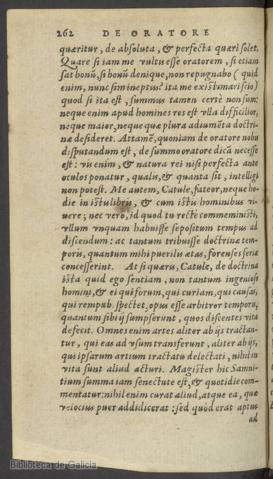 262 DE ORATORE
quæritur, de absoluta, & perfecta quæri solet.
Quare si iam me vultis esse oratorem, si etiam
sat bonũ, si bonũ denique, non repugnabo ( quid
enim, nunc sim ineptus? ita me existimari scio)
quod si ita est, summus tamen certè non sum:
neque enim apud homines res est vlla difficilior,
neque maior, neque quæ plura adiumẽta doctri-
næ desideret. Attamẽ, quoniam de oratore nobis
disputandum est, de summo oratore dicã necesse
est: vis enim, & natura rei nisi perfecta ante
oculos ponatur, qualis, & quanta sit, intelligi
non potest. Me autem, Catule, fateor, neque ho-
die in istis libris, & cum istis hominibus vi-
uere; nec vero, id quod tu rectè commeministi,
vllum vnquam habuisse sepositum tempus ad
discendum: ac tantum tribuisse doctrinæ tem-
poris, quantum mihi puerilis ætas, forenses feriæ
concesserint. At si quæris, Catule, de doctrina
ista quid ego sentiam, non tantum ingenioso
homini, & ei qui forum, qui curiam, qui causas,
qui rempub. spectet, opus esse arbitror temporis,
quantum sibi ij sumpserunt, quos discentes vita
defecit. Omnes enim artes aliter ab ijs tractan-
tur, qui eas ad vsum transferunt, aliter ab ijs,
qui ipsarum artium tractatu delectati, nihil in
vita sunt aliud acturi. Magister hic Samni-
tium summa iam senectute est, & quotidie com-
mentatur: nihil enim curat aliud, atque ea, quæ
velocius puer addidicerat: sed quod erat aptus
ad
Biblioteca de Galicia